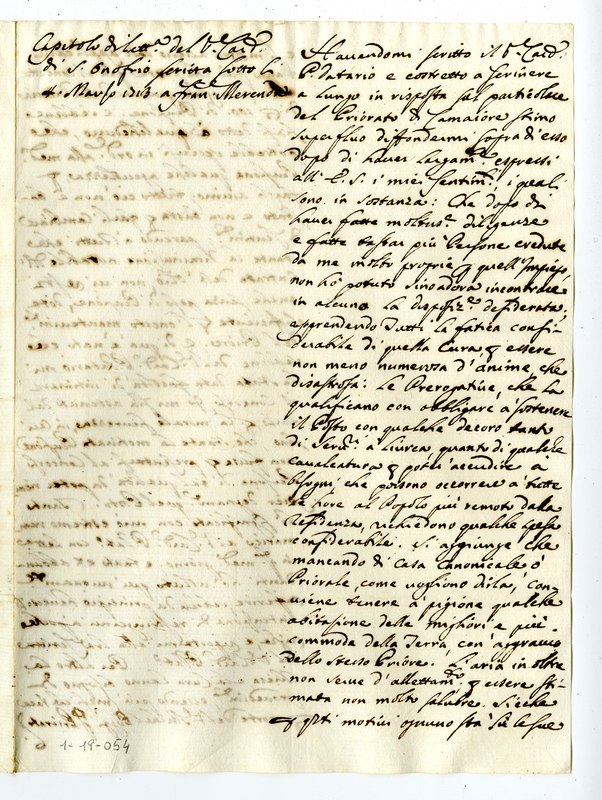 Capitolo di lett.ª del S.r Card.
di S. Onofrio scritta sotto li
4. Marzo 1713. a Fran.º Merenda
Havendomi scritto il S.r Card.
P. Datario e costretto a scrivere
a lungo in risposta sul particolare
del Priorato di Camaiore stimo
superfluo diffondermi sopra di esso
dopo di haver largam.te espressi
all' E. S. i miei sentim.ti, i quali
sono in sostanza: Che dopo di
haver fatte moltiss.e diligenze
e fatte tastar più Persone credute
da me molto proprie p quell' Impiego,
non hò potuto sin adora incontrare
in alcuno la disposiz.e desiderata;
apprendendo Tutti la fatica consi-
derabile di quella Cura p essere
non meno numerosa d'anime, che
disastrosa: Le Prerogative, che la
qualificano con obbligare à sostenere
il Posto con qualche decoro tanto
di Serv.ù à livrea quanto di qualche
cavalcatura p poter accudire a
bisogni che possono occorrere a tutte
le hore al Popolo più remoto dalla
Residenza, richiedono qualche spesa
considerabile. Si aggiunge che
mancando di Casa Canonicale ò
Priorale, come vogliono dirla, con-
viene tenere à pigione qualche
abitazione delle migliori e più
commode della Terra, con aggravio
dello stesso Priore. L'aria in oltre
non serve d'allettam.to p essere sti-
mata non molto salubre. Si che
p q̃sti motivi ogn'uno sta sù le sue
1-19-054